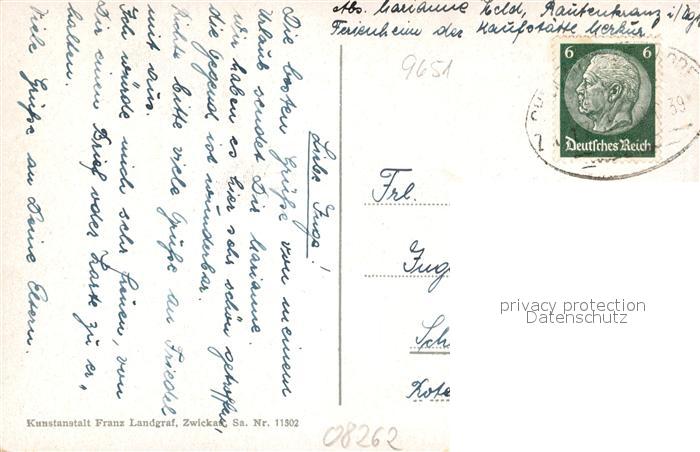 Abs. Marianne Held, Rautenkranz i/Vgtl.
Ferienheim der Kaufstätte Merkur
9651
6 6
Deutsches Reich
39
Liebe Inge!
Die besten Grüße von meinem
Urlaub sendet Dir Marianne.
Wir haben es hier sehr schön getroffen,
die Gegend ist wunderbar.
Richte bitte viele Grüße an Friedel
mit aus.
Ich würde mich sehr freuen, von
Dir einen Brief oder Karte zu er-
halten.
Viele Grüße an Deine Eltern.
Frl.
Ing
Sch
Rote
privacy protection
Datenschutz
Kunstanstalt Franz Landgraf, Zwickau, Sa. Nr. 11302
08262